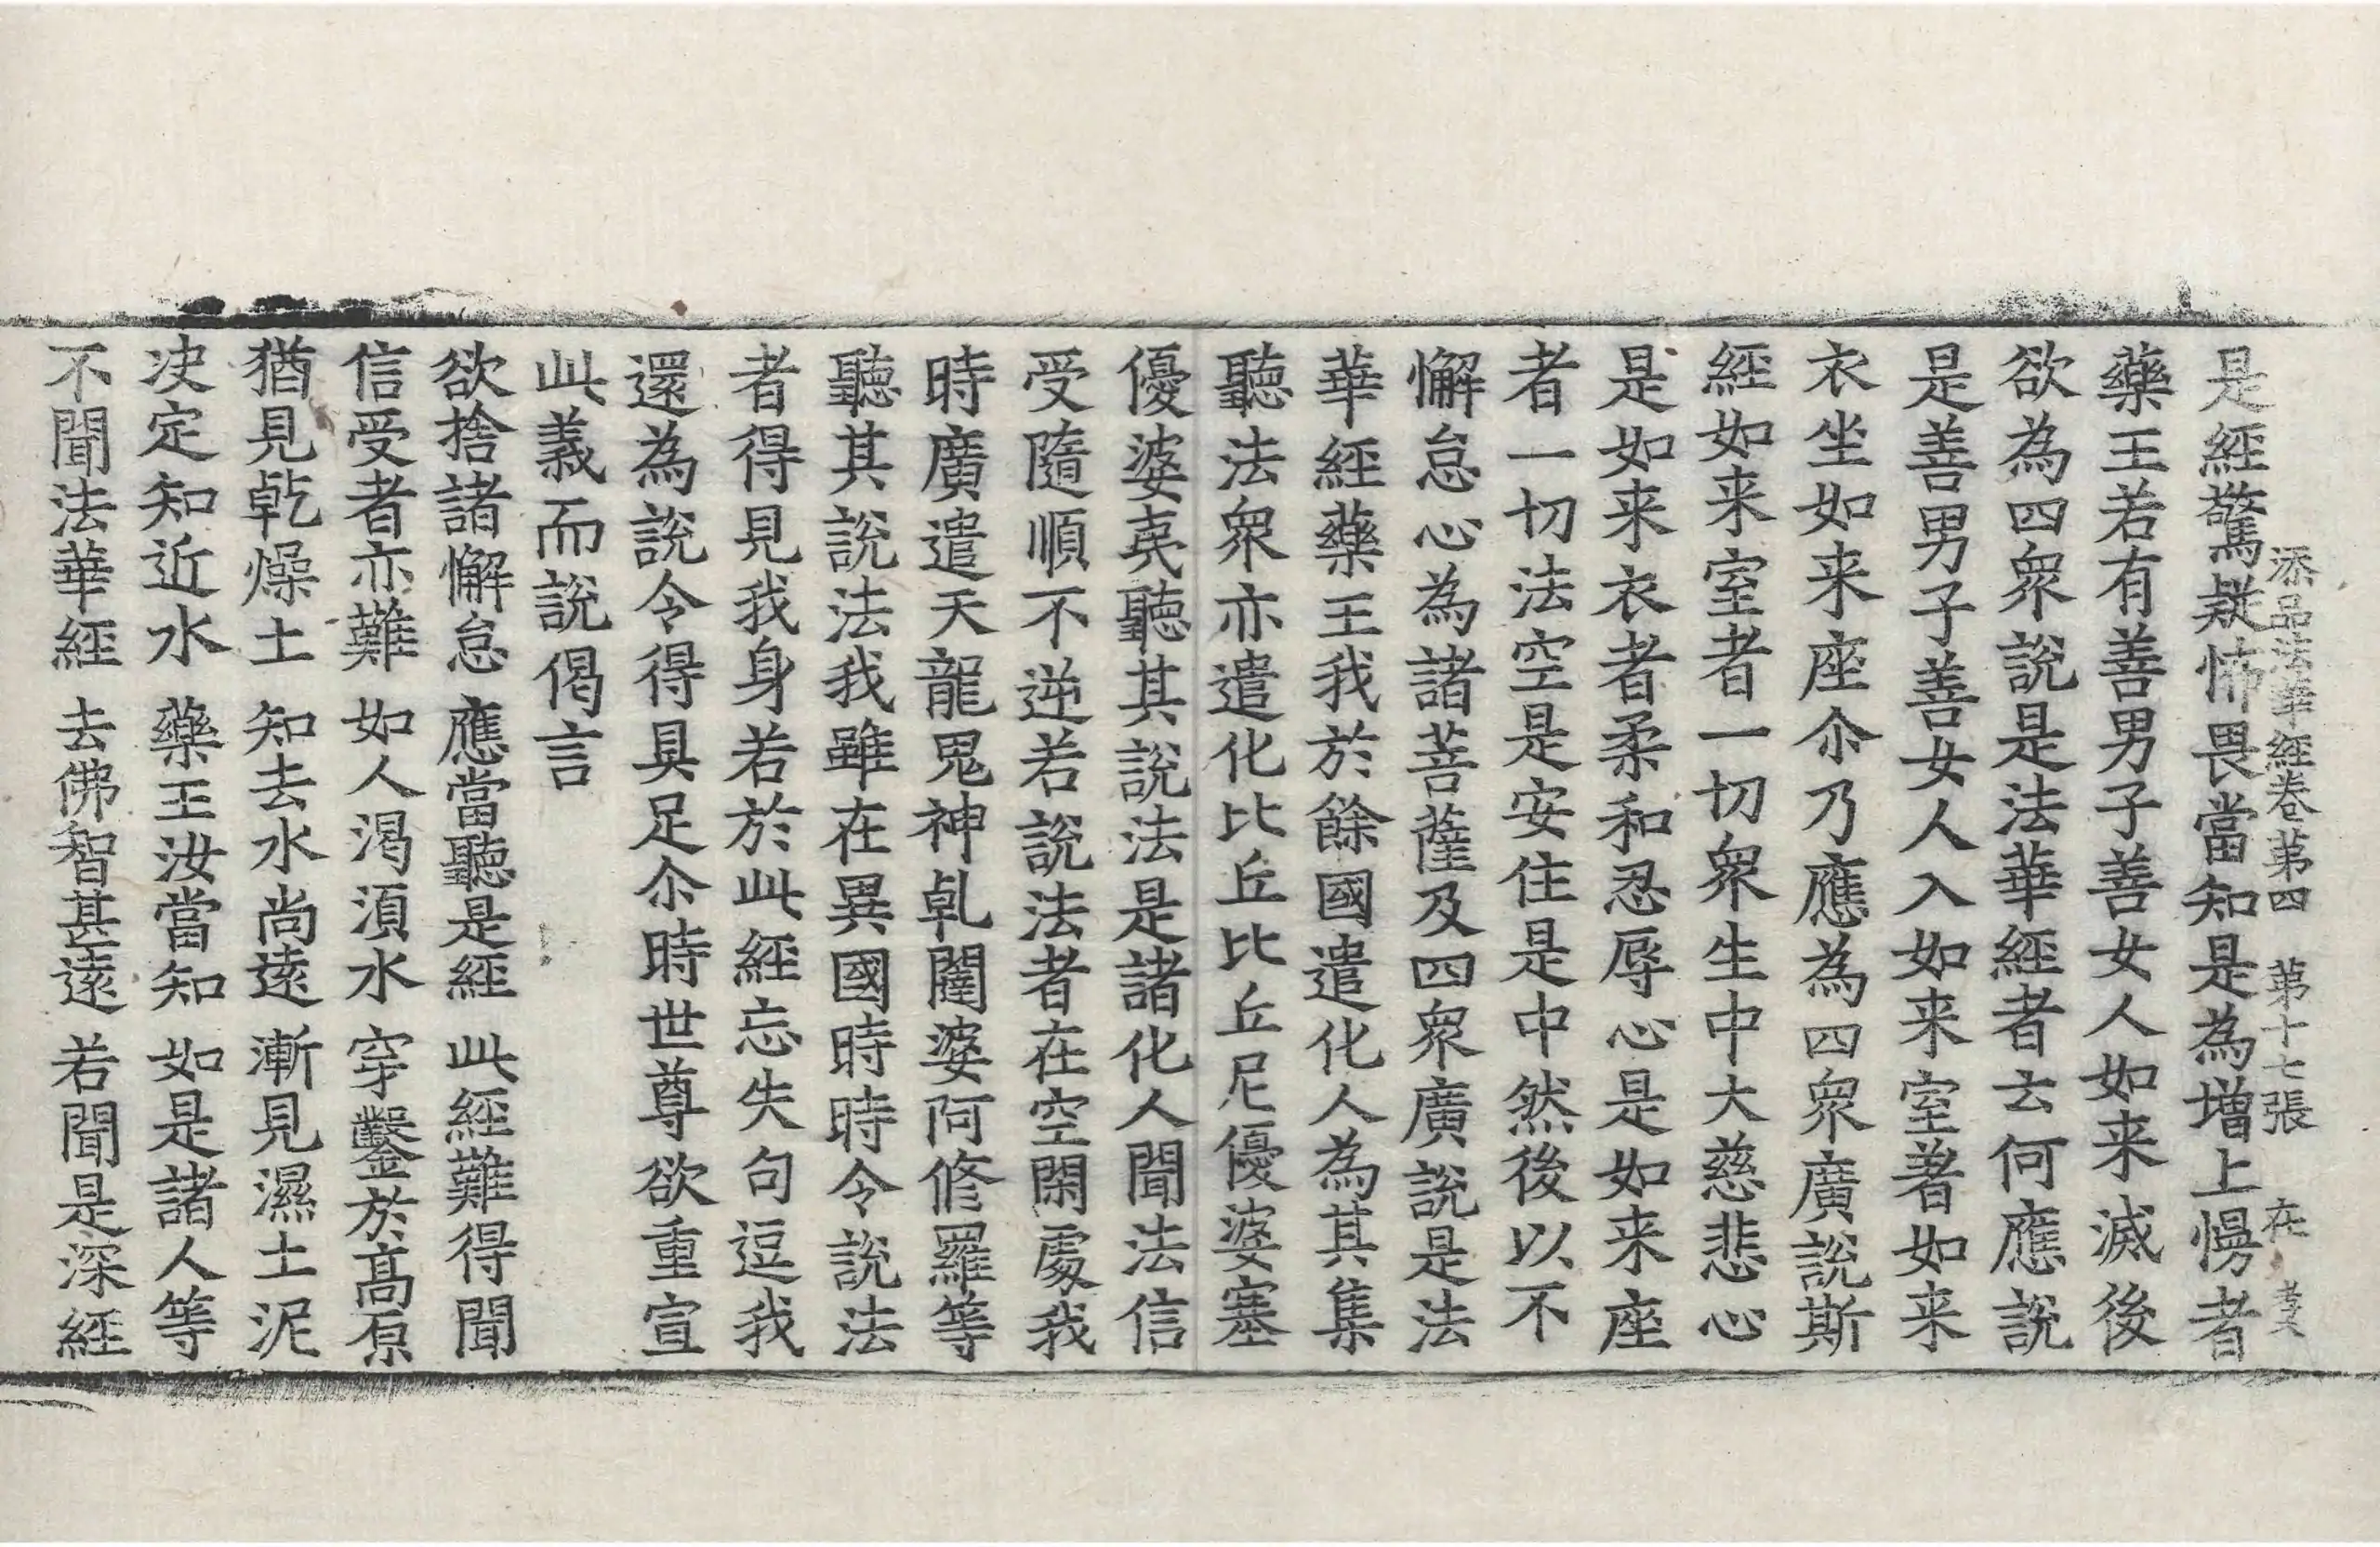 添品法華經卷第四　第十七張　在
是經驚疑怖畏當知是為增上慢者
藥王若有善男子善女人如来滅後
欲為四眾說是法華經者云何應說
是善男子善女人入如来室著如来
衣坐如来座尒乃應為四眾廣說斯
經如来室者一切眾生中大慈悲心
是如来衣者柔和忍辱心是如来座
者一切法空是安住是中然後以不
懈怠心為諸菩薩及四眾廣說是法
華經藥王我於餘國遣化人為其集
聽法眾亦遣化比丘比丘尼優婆塞
優婆夷聽其說法是諸化人聞法信
受隨順不逆若說法者在空閑處我
時廣遣天龍鬼神乹闥婆阿修羅等
聽其說法我雖在異國時時令說法
者得見我身若於此經忘失句逗我
還為說令得具足尒時世尊欲重宣
此義而說偈言
欲捨諸懈怠　應當聽是經　此經難得聞
信受者亦難　如人渴湏水　穿鑿於高原
猶見乾燥土　知去水尚遠　漸見濕土泥
决定知近水　藥王汝當知　如是諸人等
不聞法華經　去佛智甚遠　若聞是深經